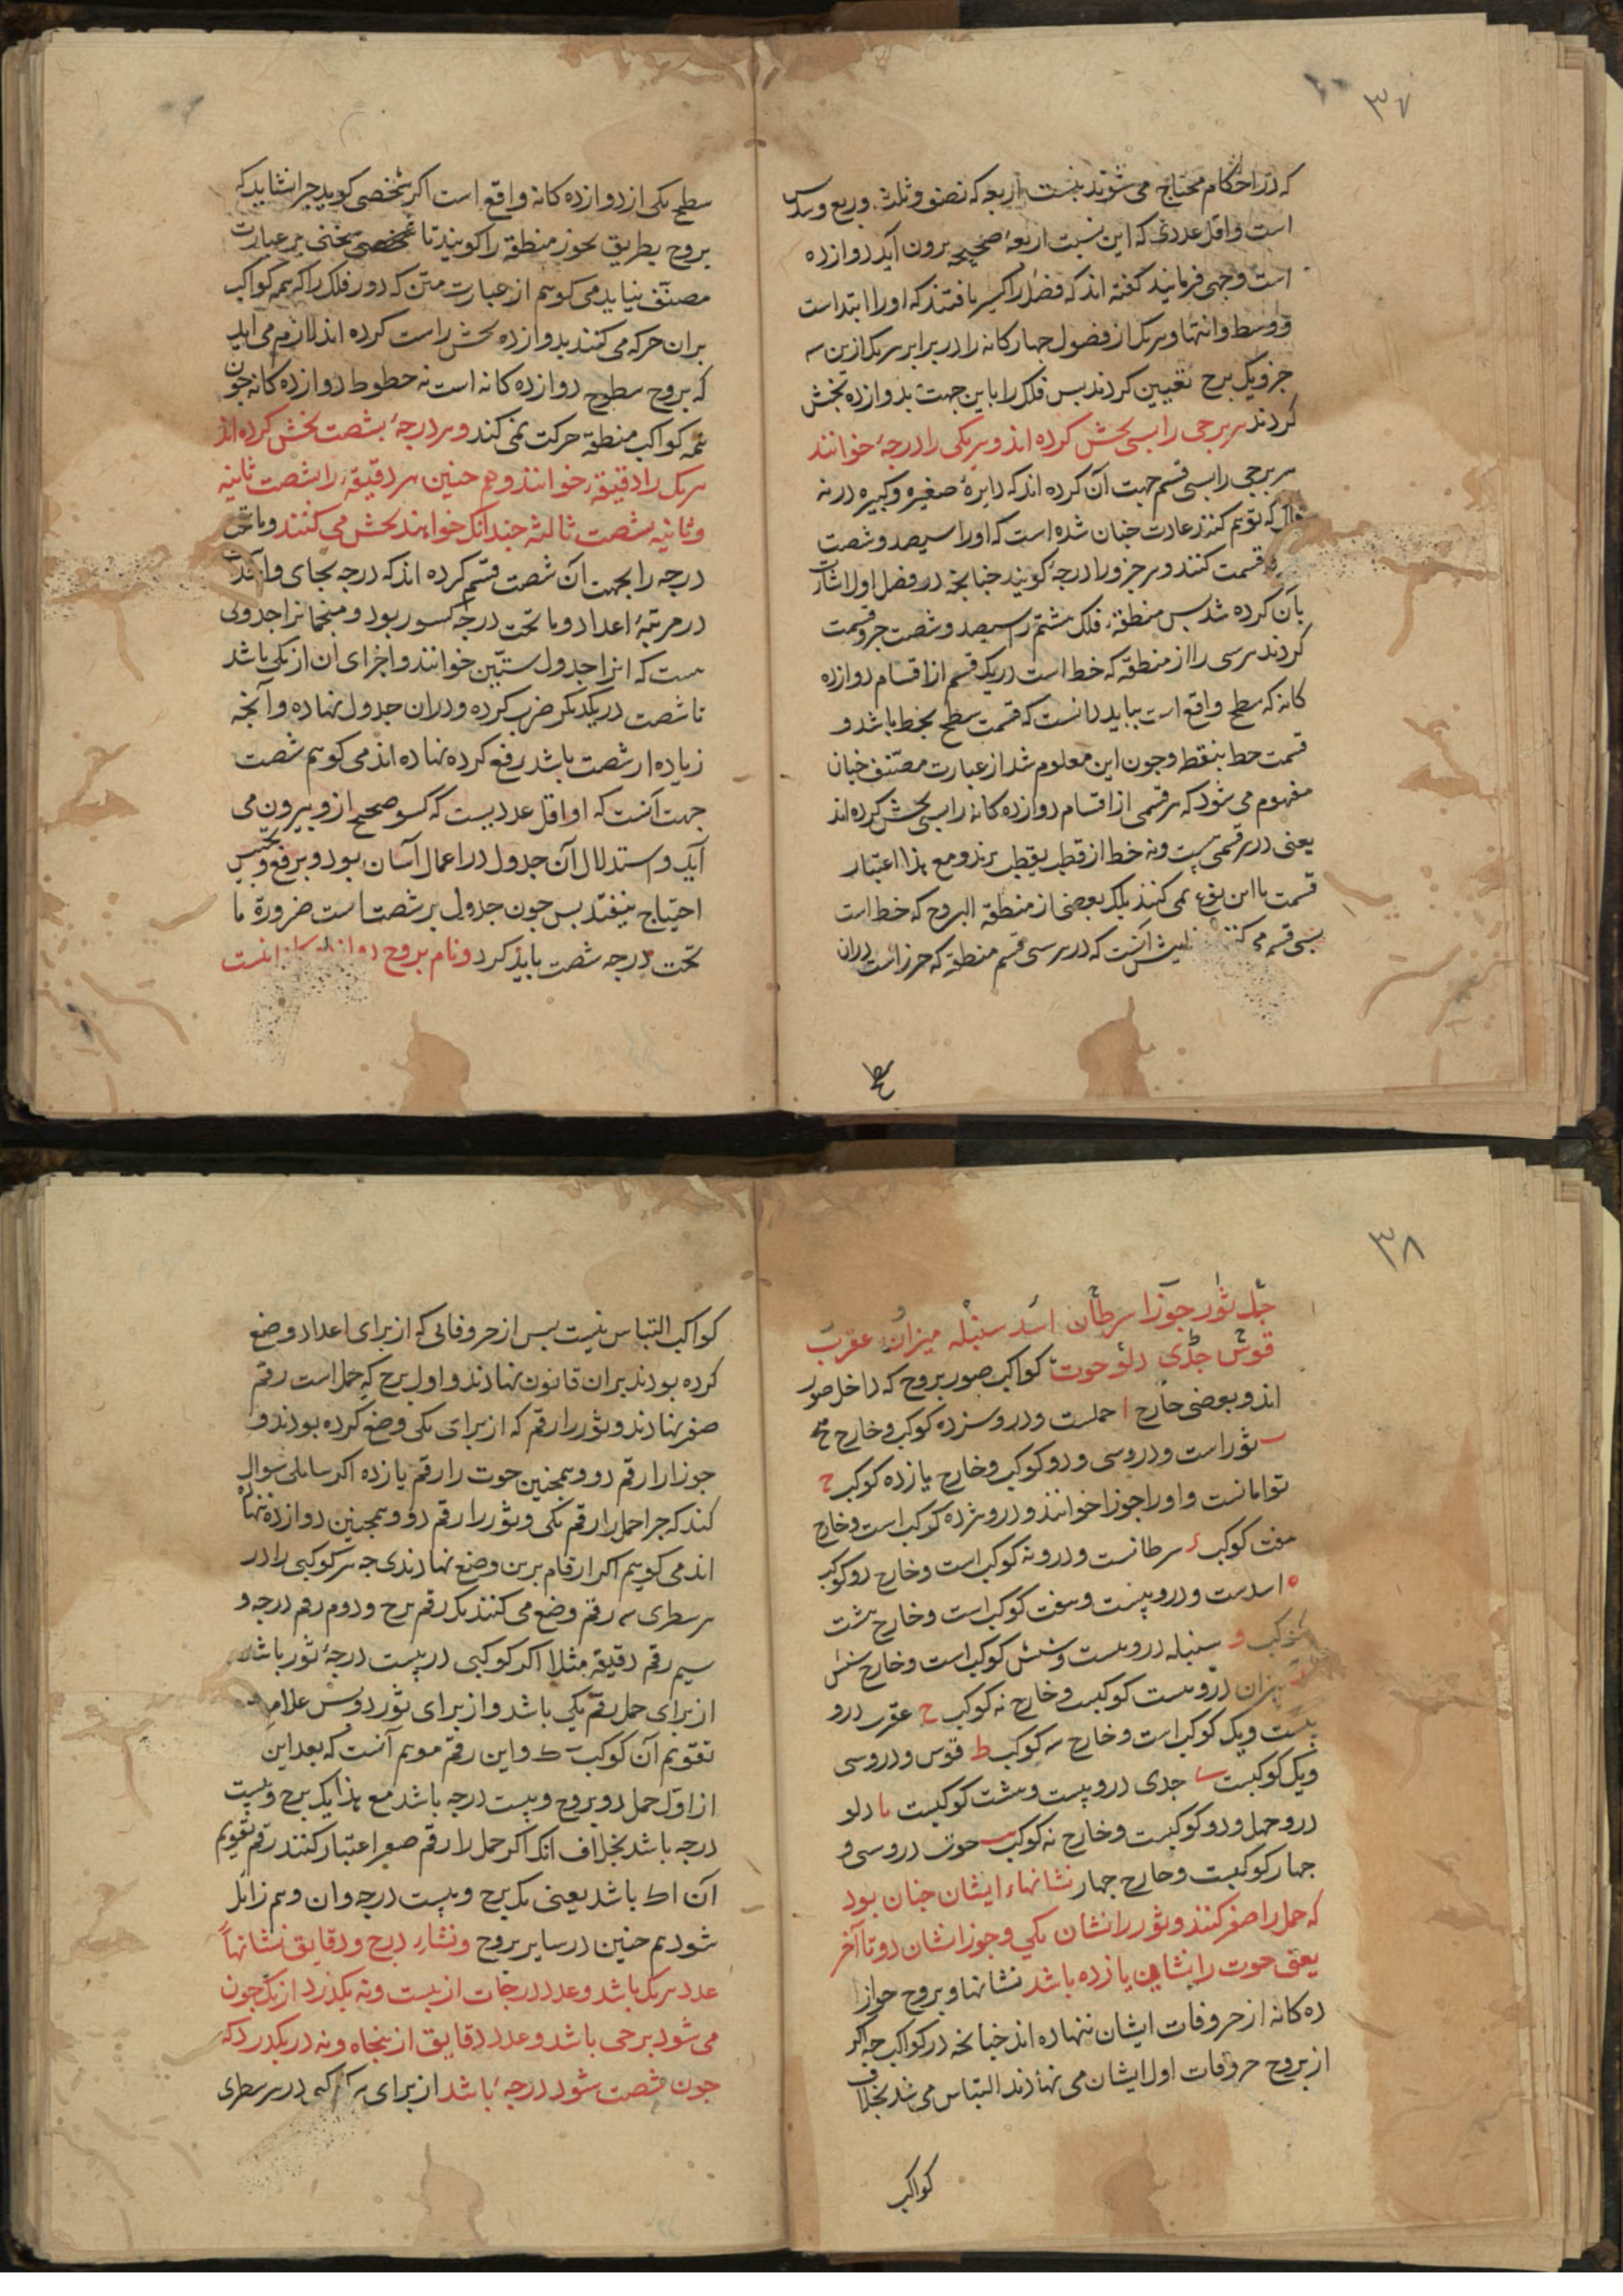 ۳۷
که در احکام محتاج می شوند بنسبت اربعه که نصف و ثلث و ربع و سدس
است و اقل عددی که این نسبت اربعه صحیحه برون آید دوازده
است وجهی فرمایند گفته اند که فصل را کسر یافتند که اورا ابتداست
و وسط و انتها و هر یک از فصول چهارکانه را در برابر هر یک ازین سه
جزو یک برج تعیین کردند بس فلک را باین جهت بدوازده بخش
کردند هر برجی را بسی بخش کرده اند و هر یکی را درجه خوانند
هر برجی را بسی قسم جهت آن کرده اند که دایرهٔ صغیره و کبیره در نه
فلک که توهم کنند عادت چنان شده است که اورا سیصد و شصت
قسمت کنند و هر جزو را درجه کویند چنانچه در فصل اول اشارت
بآن کرده شد بس منطقهٔ فلک هشتم را سیصد و شصت جزو قسمت
کردند هر سی را از منطقه که خط است در یک قسم از اقسام دوازده
کانه که سطح واقع است بباید دانست که قسمت سطح بخط باشد و
قسمت خط بنقط و چون این معلوم شد از عبارت مصنّف چنان
مفهوم می شود که هر قسمی از اقسام دوازده کانه را بسی بخش کرده اند
یعنی در هر قسمی بیست و نه خط از قطب بقطب برند و مع هذا اعتبار
قسمت باین نوع نمی کنند بلکه بعضی از منطقة البروج که خط است
بسی قسم می کنند آنست که در هر سی قسم منطقه که جزء است در آن
سطح
سطح یکی از دوازده کانه واقع است اکر شخصی کوید چرا نشاید که
بروج بطریق تجوز منطقه را کویند تا سخنی بر عبارت
مصنّف نیاید می کوییم از عبارت متن که دور فلک را که همه کواکب
بران حرکه می کنند بدوازده بخش راست کرده اند لازم می آید
که بروج سطوح دوازده کانه است نه خطوط دوازده کانه چون
همه کواکب منطقه حرکت نمی کنند و هر درجهٔ بشصت بخش کرده اند
هر یک را دقیقه خوانند و هم چنین هر دقیقه را شصت ثانیه
و ثانیه بشصت ثالثه چندانک خواهند بخش می کنند و ما تحت
درجه را بجهت آن شصت قسم کرده اند که درجه بجای واحدست
در مرتبهٔ اعداد و ما تحت درجه کسور بود و منجمانرا جدولی
هست که انرا جدول ستّین خوانند و اجزای ان از یکی باشد
تا شصت در یکدیکر ضرب کرده و دران جدول نهاده و آنچه
زیاده از شصت باشد رفع کرده نهاده اند می کوییم شصت
جهت آنست که او اقل عددیست که کسور صحیح ازو بیرون می
آید و استدلال آن جدول در اعمال آسان بود و برفع و تجنیس
احتیاج نیفتد بس چون جدول بر شصت است ضرورة ما
تحت درجه شصت باید کرد و نام بروج دوازده کانه اینست
۳۸
حمل ثور جوزا سرطان اسد سنبله میزان عقرب
قوس جدی دلو حوت کواکب صور بروج که داخل صور
اند و بعضی خارج ا حملست و درو سیزده کوکب و خارج پنج
ب ثور است و درو سی و دو کوکب و خارج یازده کوکب ج
توامانست و اورا جوزا خوانند و درو هژده کوکب است و خارج
هفت کوکب د سرطانست و درو نه کوکب است و خارج دو کوکب
ه اسدست و درو بیست و هفت کوکب است و خارج هشت
کوکب و سنبله درو بیست و شش کوکب است و خارج شش
میزان درو هشت کوکبست و خارج نه کوکب ح عقرب درو
بیست و یک کوکب است و خارج سه کوکب ط قوس و درو سی
و یک کوکبست ی جدی درو بیست و هشت کوکبست یا دلو
درو چهل و دو کوکبست و خارج نه کوکب یب حوت درو سی و
چهار کوکبست و خارج چهار نشانهاء ایشان چنان بود
که حمل را صفر کنند و ثور را نشان یکی و جوزا نشان دو تا آخر
یعنی حوت را نشان یازده باشد نشانها و بروج
ده کانه از حروفات ایشان ننهاده اند چنانچه در کواکب چه اکر
از بروج حروفات اول ایشان می نهادند التباس می شد بخلاف
کواکب
کواکب التباس نیست بس از حروفاتی که از برای اعداد وضع
کرده بودند بران قانون نهادند و اول برج که حمل است رقم
صفر نهادند و ثور را رقم که از برای یکی وضع کرده بودند و
جوزا را رقم دو و همچنین حوت را رقم یازده اکر سایلی سوال
کند که چرا حمل را رقم یکی و ثور را رقم دو و همچنین دوازده ننهاده
اند می کوییم اکر ارقام برین وضع نهادندی چه هر کوکبی را در
هر سطری سه رقم وضع می کنند یک رقم برج و دوم رقم درجه و
سیم رقم دقیقه مثلا اکر کوکبی در بیست درجهٔ ثور باشد
از برای حمل رقم یکی باشد و از برای ثور دو بس علامت
تقویم آن کوکب ب ک و این رقم موهم آنست که بعد این
از اول حمل دو بروج و بیست درجه باشد مع هذا یک برج و بیست
درجه باشد بخلاف آنک اکر حمل را رقم صفر اعتبار کنند رقم تقویم
آن ا ک باشد یعنی یک برج و بیست درجه و ان وهم زایل
شود هم چنین در سایر بروج و نشان درج و دقایق نشانهاء
عدد هر یک باشد و عدد درجات از بیست و نه بکذرد از یک چون
می شود برجی باشد و عدد دقایق از پنجاه و نه در بکذرد که
چون شصت شود درجهٔ باشد از برای هر کوکبی در هر سطری